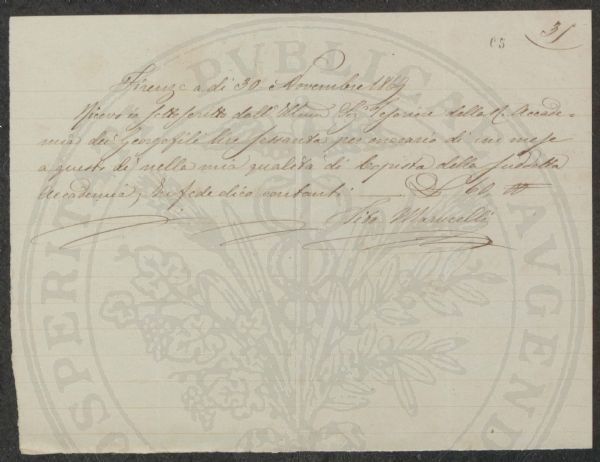 31
Firenze a di 30 Novembre
Ricevo io sottoscritto dall' Illmo Sig Tesoriere della R. Accade-
mia dei Georgofili lire sessanta per onorario di un mese
a questo dì nella mia qualità di Copista della suddetta
Accademia, In fede dico contanti £ 60
Marucelli
PVBLICAE
AVGENDAE
PROSPERITATI